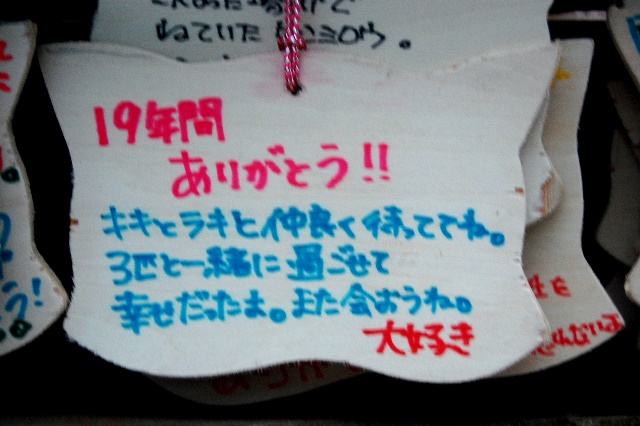 ねていた
19年間
ありがとう!!
キキとラキと仲良く待っててね。
3匹と一緒に過ごせて
幸せだったよ。また会おうね。
大好き